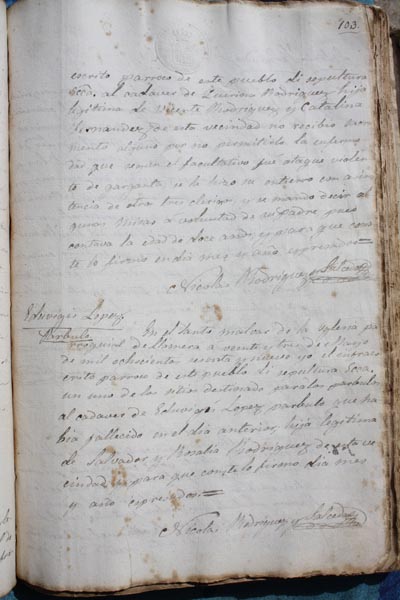 103.
escrito parroco de este pueblo di sepultura
Ecca. al cadaver de Queirino Rodriguez, hijo
legitimo de Vicente Rodriguez, y Catalina
Fernandez, de esta vecindad no recibio Sacra
mento alguno por no permitirlo la enferme
dad que segun el facultativo fue ataque violen
to de garganta, se le hizo su entierro con asis
tencia de otros tres clerigos y se mando decir al
gunas Misas a voluntad de su padre, pues
contava la edad de doce años, y para que cons
te lo firmo en dia mes y año espresados=
Nicolas Rodriguez y Salcedo
Eduvigis Lopez
Parbulo
En el Santo
de la Yglesia pa
rroquial de Llamera a veinte y tres de Mayo
de mil ochocientos sesenta y nueve yo el infraes
crito parroco de este pueblo di sepultura Ecca.
en uno de los sitios destinado para los parbulos
al cadaver de Eduvigis Lopez, parbulo que ha
bia fallecido en el dia anterior, hija legitima
de Salvador, y Rosalia Rodriguez, de esta ve
cindad, y para que conste lo firmo dia mes
y año espresados=
Nicolas Rodriguez y Salcedo